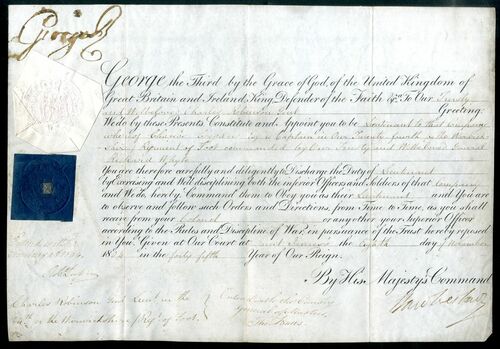 George R
George the Third by the Grace of God, of the United Kingdom of
Great Britain and Ireland King, Defender of the Faith &c. To Our Trusty
and Wellbeloved Charles Robinson Gent Greeting
We do by these Presents Constitute and Appoint you to be Lieutenant to that Company
whereof Esquire is Captain in Our Twenty fourth or the Warwick
shire Regiment of Foot commanded by Our Trusty and Wellbeloved General
Richard Whyte
You are therefore carefully and diligently to Discharge the Duty of Lieutenant
by Exercising and Well disciplining both the inferior Officers and Soldiers of that Company
and We do hereby Command them to Obey you as their Lieutenant and You are
to observe and follow such Orders and Directions, from Time to Time, as you shall
receive from your Colonel or any other your Superior Officer
according to the Rules and Discipline of War, in pursuance of the Trust hereby reposed
in You. Given at Our Court at Saint James's the Eighth day of November
1804 in the forty fifth Year of Our Reign.
By His Majesty's Command
Entered with the
Charles Robinson Gent Lieut. in the
24th or the Warwickshire Regt. of Foot.
Entered with the Commissary
General of Musters